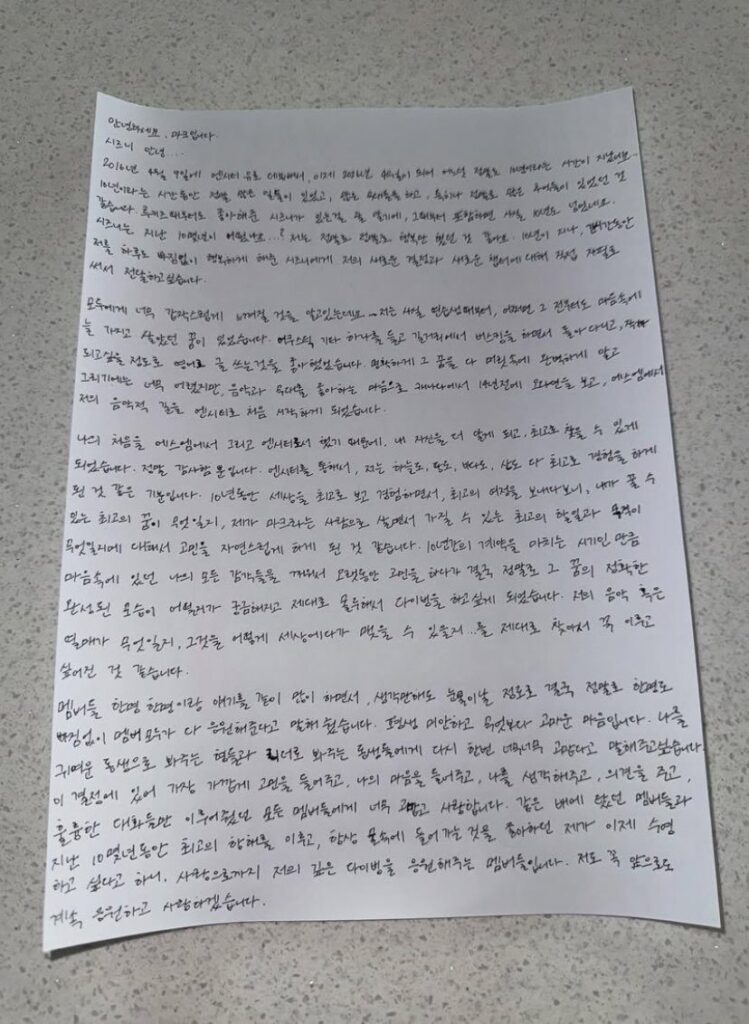 안녕하세요, 마크입니다.
시즈니 안녕...
2016년 4월 9일에 엔시티 유로 데뷔해서, 이제 2026년 4월이 되어 어느덧 정말로 10년이라는 시간이 지났네요..
10년이라는 시간동안 정말 많은 일들이 있었고, 많은 무대들을 하고, 특히나 정말로 많은 추억들이 있었던 것
같습니다. 루키즈 때부터도 좋아해준 시즈니가 있는걸 잘 알기에, 그때부터 포함하면 사실 10년도 넘었네요.
시즈니는 지난 10몇년이 어땠나요...? 저는 정말로 정말로 행복만 했던 것 같아요. 10년이 지나, 그 시간동안
저를 하루도 빠짐없이 행복하게 해준 시즈니에게 저의 새로운 결정과 새로운 챕터에 대해 직접 자필로
써서 전달하고싶습니다.
모두에게 너무 갑작스럽게 느껴질 것을 알고있는데요... 저는 사실 연습생때부터, 어쩌면 그 전부터도 마음속에
늘 가지고 살았던 꿈이 있었습니다. 어쿠스틱 기타 하나를 들고 길거리에서 버스킹을 하면서 돌아다니고, 작가
되고싶을 정도로 영어로 글 쓰는것을 좋아했었습니다. 명확하게 그 꿈을 다 머릿속에 완벽하게 알고
그리기에는 너무 어렸지만, 음악과 무대를 좋아하는 마음으로 캐나다에서 14년전에 오디션을 보고, 에스엠에서
저의 음악적 길을 엔시티로 처음 시작하게 되었습니다.
나의 처음을 에스엠에서 그리고 엔시티로서 했기 때문에, 내 자신을 더 알게 되고, 최고로 찾을 수 있게
되었습니다. 정말 감사할 뿐입니다. 엔시티를 통해서, 저는 하늘도, 땅도, 바다도, 산도 다 최고로 경험을 하게
된 것 같은 기분입니다. 10년동안 세상을 최고로 보고 경험하면서, 최고의 여정을 보내다보니, 내가 꿀 수
있는 최고의 꿈이 무엇일지, 제가 마크라는 사람으로 살면서 가질 수 있는 최고의 할일과 목적이
무엇일지에 대해서 고민을 자연스럽게 하게 된 것 같습니다. 10년간의 계약을 마치는 시기인 만큼
마음속에 있던 나의 모든 감각들을 깨워서 오랫동안 고민을 하다가 결국 정말로 그 꿈의 정확한
완성된 모습이 어떨지가 궁금해지고 제대로 몰두해서 다이빙을 하고싶게 되었습니다. 저의 음악 혹은
열매가 무엇일지, 그것을 어떻게 세상에다가 맺을 수 있을지..를 제대로 찾아서 꼭 이루고
싶어진 것 같습니다.
멤버들 한명 한명이랑 얘기를 같이 많이 하면서, 생각만해도 눈물이날 정도로 결국 정말로 한명도
빠짐없이 멤버 모두가 다 응원해준다고 말해 줬습니다. 평생 미안하고 무엇보다 고마운 마음입니다. 나를
귀여운 동생으로 봐주는 형들과 리더로 봐주는 동생들에게 다시 한번 너무너무 고맙다고 말해주고싶습니다.
이 결정에 있어 가장 가깝게 고민을 들어주고, 나의 마음을 들어주고, 나를 생각해주고, 의견을 주고,
훌륭한 대화들만 이루어줬던 모든 멤버들에게 너무 고맙고 사랑합니다. 같은 배에 탔던 멤버들과
지난 10몇년동안 최고의 항해를 이루고, 항상 물속에 들어가는 것을 좋아하던 제가 이제 수영
하고 싶다고 하니, 사랑으로까지 저의 깊은 다이빙을 응원해주는 멤버들입니다. 저도 꼭 앞으로도
계속 응원하고 사랑하겠습니다.